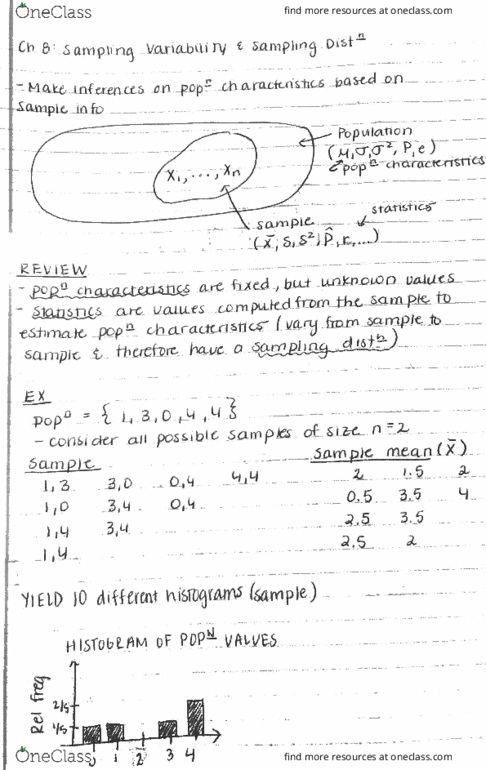 OneClass find more resources at oneclass.com
Ch 8: Sampling Variability & Sampling Distⁿ
- Make inferences on popⁿ characteristics based on
sample info
Population
(μ, σ, σ², P, e)
popⁿ characteristics
x₁, ..., xₙ
statistics
sample
(x̄, s, s², p̂, r, ...)
REVIEW
- popⁿ characteristics are fixed, but unknown values
- statistics are values computed from the sample to
estimate popⁿ characteristics (vary from sample to
sample & therefore have a sampling distⁿ)
EX
popⁿ = { 1, 3, 0, 4, 4 }
- consider all possible samples of size n=2
sample sample mean (x̄)
1,3 3,0 0,4 4,4 2 1.5 2
1,0 3,4 0,4 0.5 3.5 4
1,4 3,4 2.5 3.5
1,4 2.5 2
YIELD 10 different histograms (sample)
HISTOGRAM OF POPᴺ VALUES
Rel freq
2/5
1/5
0 1 2 3 4
OneClass find more resources at oneclass.com